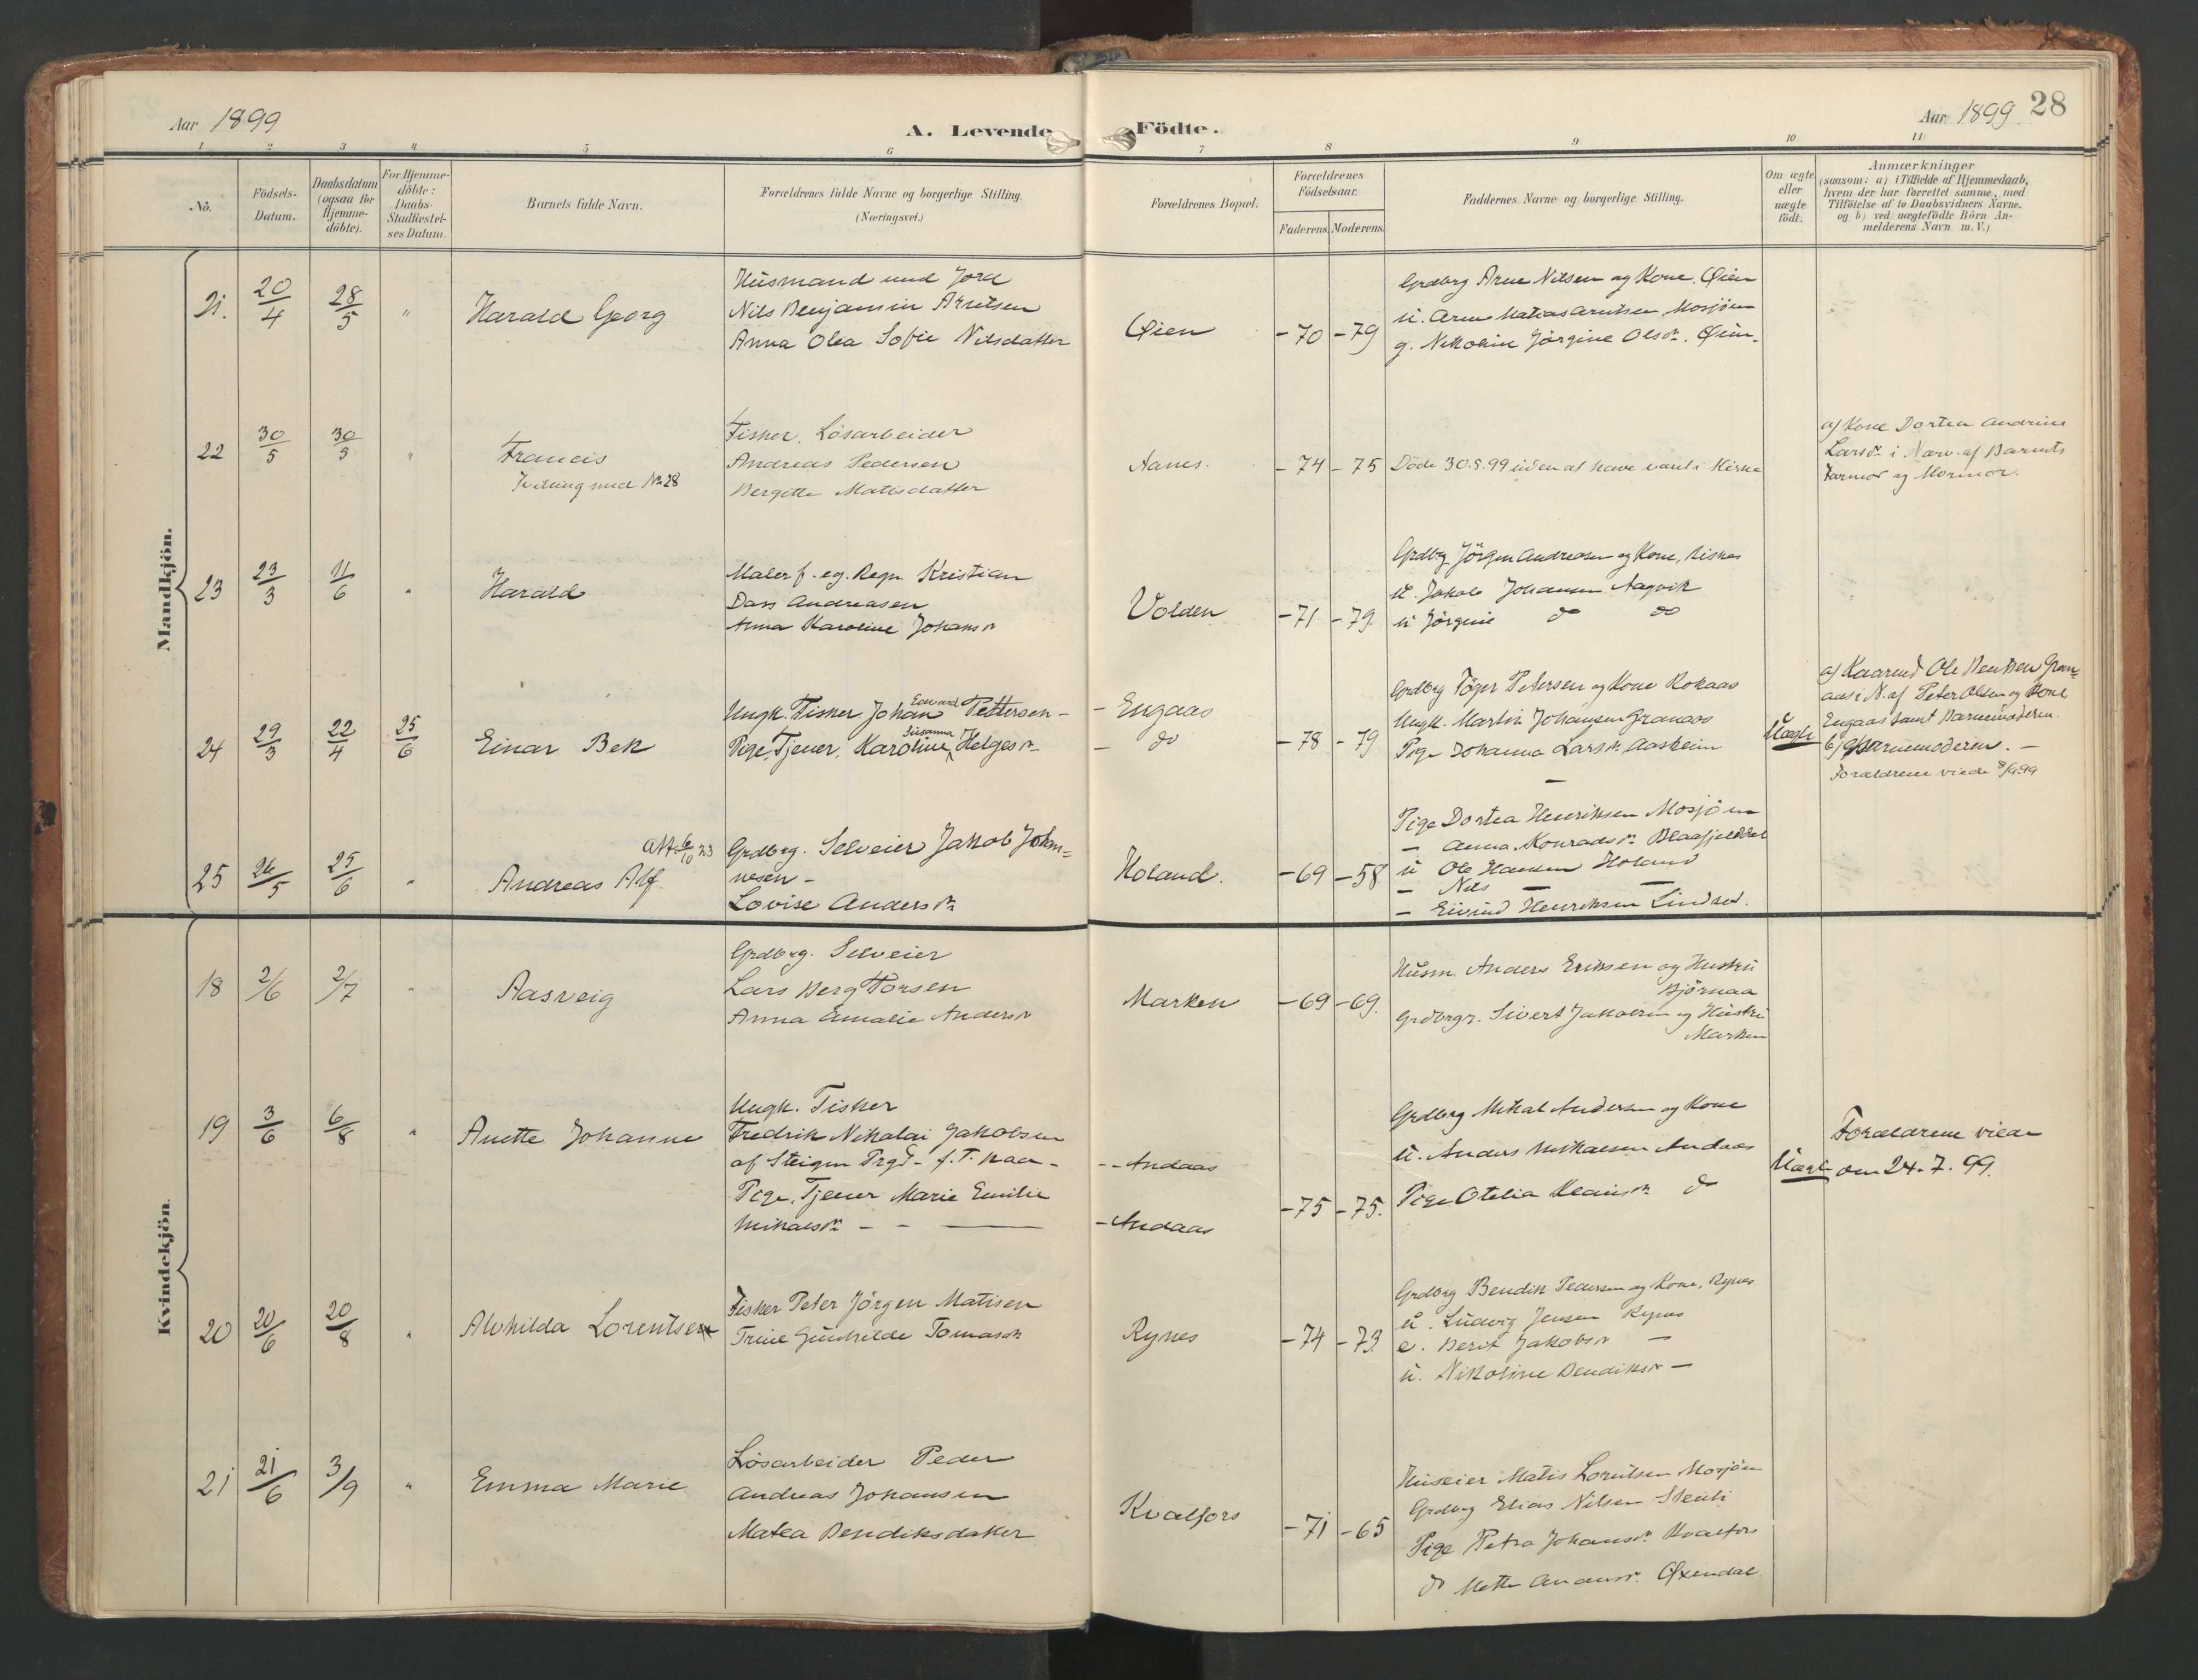 Aar 1899
A. Levende Födte.
Aar 1899. 28
1 2 3 4 5 6 7 8 9 10 11
No.
Födsels-
Datum.
Daabsdatum
(ogsaa for
Hjemme-
döbte).
For Hjemme-
döbte:
Daabs-
Stadfæstel-
ses Datum.
Barnets fulde Navn.
Forældrenes fulde Navne og borgerlige Stilling.
(Næringsvei.)
Forældrenes Bopæl.
Forældrenes
Födselsaar.
Faderens. Moderens.
Faddernes Navne og borgerlige Stilling.
Om ægte
eller
uægte
födt.
Anmærkninger
(saasom: a) i Tilfælde af Hjemmedaab,
hvem der har forrettet samme, med
Tilföielse af to Daabsvidners Navne,
og b) ved uægtefödte Börn An-
melderens Navn m. V.)
Mandkjön.
21. 20/4 28/5 "
Harald Georg
Husmand med Jord
Nils Benjamin Arntsen
Anna Olea Sofie Nilsdatter
Øien
-70 -79
Grdbrg Arne Nilsen og Kone, Øien
u. Arne Matias Arntsen Mosjøen
g. Nikoline Jörgine Olsdr. Øien.
22 30/5 30/5 "
Francis
Tvilling med No 28
Fisker, Løsarbeider
Andreas Pedersen
Bergitte Matisdatter
Aanes.
-74 -75
Döde 30.5.99 uden at have været i Kirke
af Kone Dortea Andrine
Larsdr. i Nærv. af Barnets
Farmor og Mormor.
23 23/3 11/6 "
Harald
Maler f. eg. Regn Kristian
Dass Andreasen
Anna Karoline Johansdr
Volden
-71 -79.
Grdbrg Jörgen Andreasen og Kone,
u. Jakob Johansen Aagvik
u Jörgine do do
24 29/3 22/4 25/6
Einar Bek
Ungk. Fisker Johan Edvard Pettersen -
Pige, Tjener, Karoline Susanna Helgesdr
- Engaas
- do
-78 -79
Grdbrg Töger Petersen og Kone Kokaas
Ungk. Martin Johansen Granaas
Pige Johanna Larsdr. Aasheim
Uægte
af Kaarmd Ole Bentsen Gran=
aas i N. af Peter Olsen og Kone
Engaas samt Barnemoderen.
b) af Barnemoderen. -
Forældrene viede /9.99
25 26/5 25/6 "
Andreas Alf
Att. 6/10 23
Grdbrg. Selveier Jakob Johan=
nesen -
Lovise Andersdr.
Holand.
-69 -58
Pige Dortea Henriksen Mosjöen
- Anna Konradsdr. Blaafjelddal
u Ole Hansen Holand
- Nils - -
- Eivind Henriksen Lindset.
Kvindekjön.
18 2/6 2/7 "
Aasveig
Grdbrg. Selveier
Lars Berg Torsen
Anna Amalie Andersdr
Marken
-69 -69.
Husm. Anders Eriksen og Hustru
Bjørnaa
Grdbrgr. Sivert Jakobsen og Hustru
Marken
19 3/6 6/8 "
Anette Johanne
Ungk. Fisker
Fredrik Nikolai Jakobsen
af Steigen Prgd - f. T. paa -
Pige, Tjener Marie Emilie
Mikalsdr. - - -
- - Andaas
- Andaas
-75 -75.
Grdbrg Mikal Andersen og Kone
u. Anders Mikalsen Andaas
Pige Otelia Klausdr. do
Uægte
Forældrene viede
om 24.7.99.
20 20/6 20/8 "
Alvhilda Lorentsen
Fisker Peter Jörgen Matisen
Trine Gunhilde Tomasdr
Rynes
-74 -73.
Grdbrg Bendik Pedersen og Kone, Rynes
u. Ludvig Jensen Rynes
e. Berit Jakobsdr -
u. Nikoline Bendiksdr -
21 21/6 3/9 "
Emma Marie
Løsarbeider Peder
Andreas Johansen
Matea Bendiksdatter
Kvalfors
-71 -65
Huseier Matis Lorentsen Mosjöen
Grdbrg Elias Nilsen
Pige Petra Johansdr. Kvalfors
do Mette Øxendal.